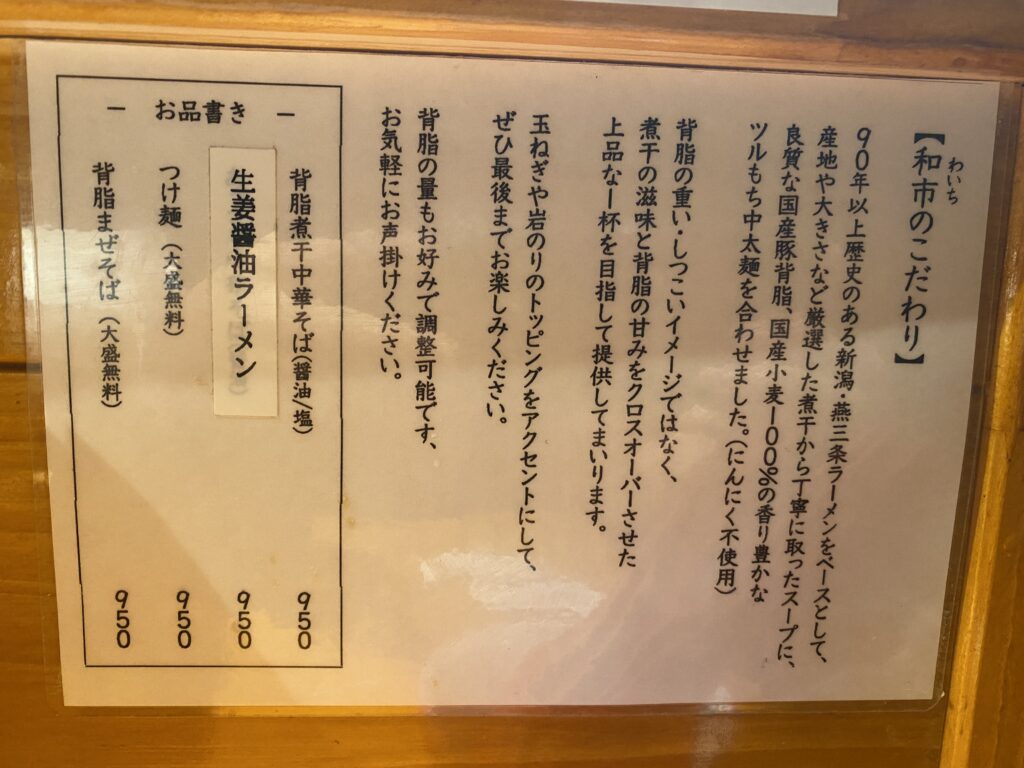 【和市のこだわり】
わいち
90年以上歴史のある新潟・燕三条ラーメンをベースとして、
産地や大きさなど厳選した煮干から丁寧に取ったスープに、
良質な国産豚背脂、国産小麦100%の香り豊かな
ツルもち中太麺を合わせました。(にんにく不使用)
背脂の重い・しつこいイメージではなく、
煮干の滋味と背脂の甘みをクロスオーバーさせた
上品な一杯を目指して提供してまいります。
玉ねぎや岩のりのトッピングをアクセントにして、
ぜひ最後までお楽しみください。
背脂の量もお好みで調整可能です、
お気軽にお声掛けください。
― お品書き ―
背脂煮干中華そば(醤油/塩) 950
生姜醤油ラーメン 950
つけ麺 (大盛無料) 950
背脂まぜそば (大盛無料) 950